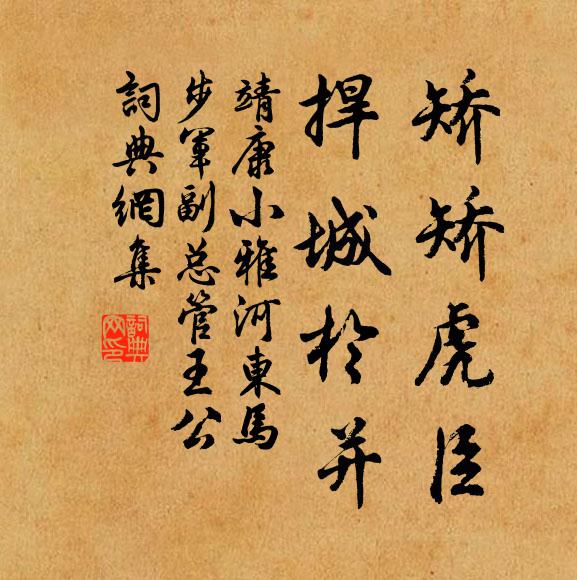 矫矫虎臣
捍城於并
靖康小雅河東馬
步军副总管王公
詞典網集
詞典
网印